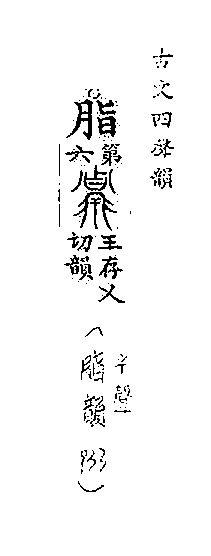 古文四聲韻
脂
第六
王存乂
切韻
平聲
脂韻